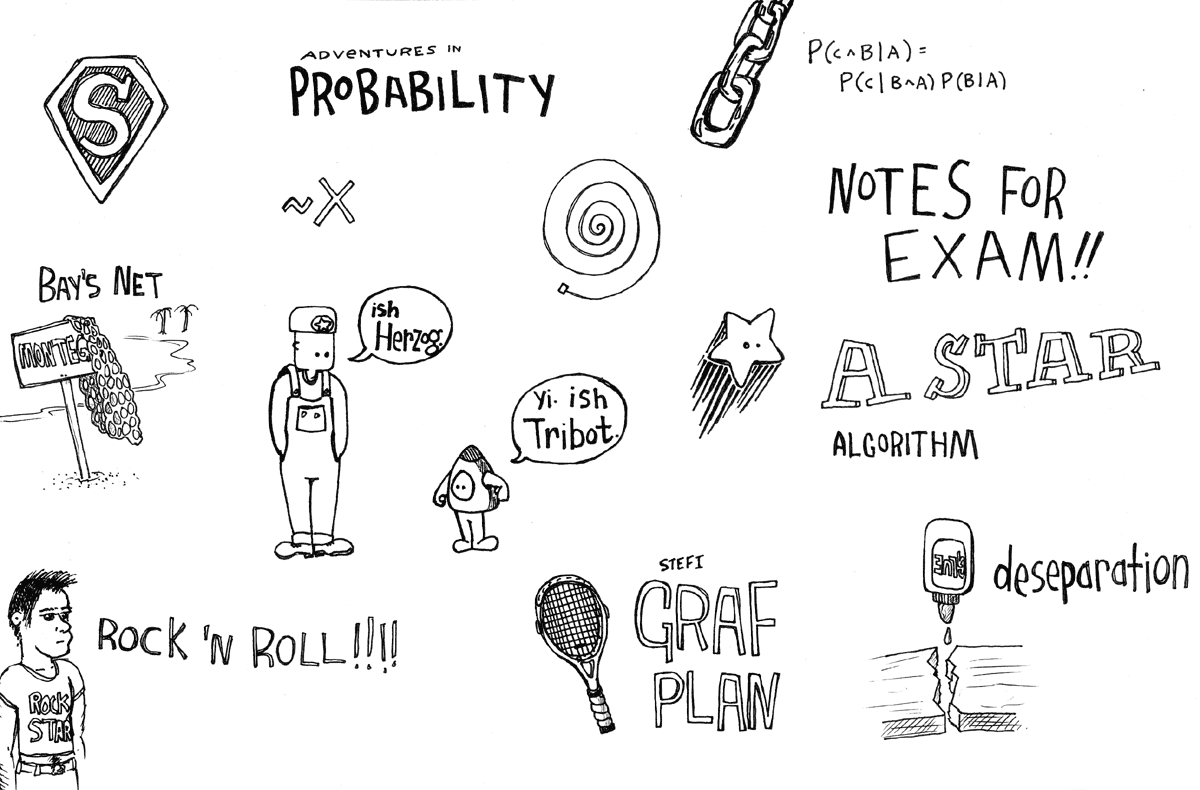 S
ADVENTURES IN
PROBABILITY
P(C^B|A) =
P(C|B^A) P(B|A)
~X
NOTES FOR
EXAM!!
BAY'S NET
MONTEG
ish
Herzog.
A STAR
ALGORITHM
Yi. ish
Tribot.
deseparation
STEFI
GRAF
PLAN
ROCK 'N ROLL!!!!
ROCK
STAR